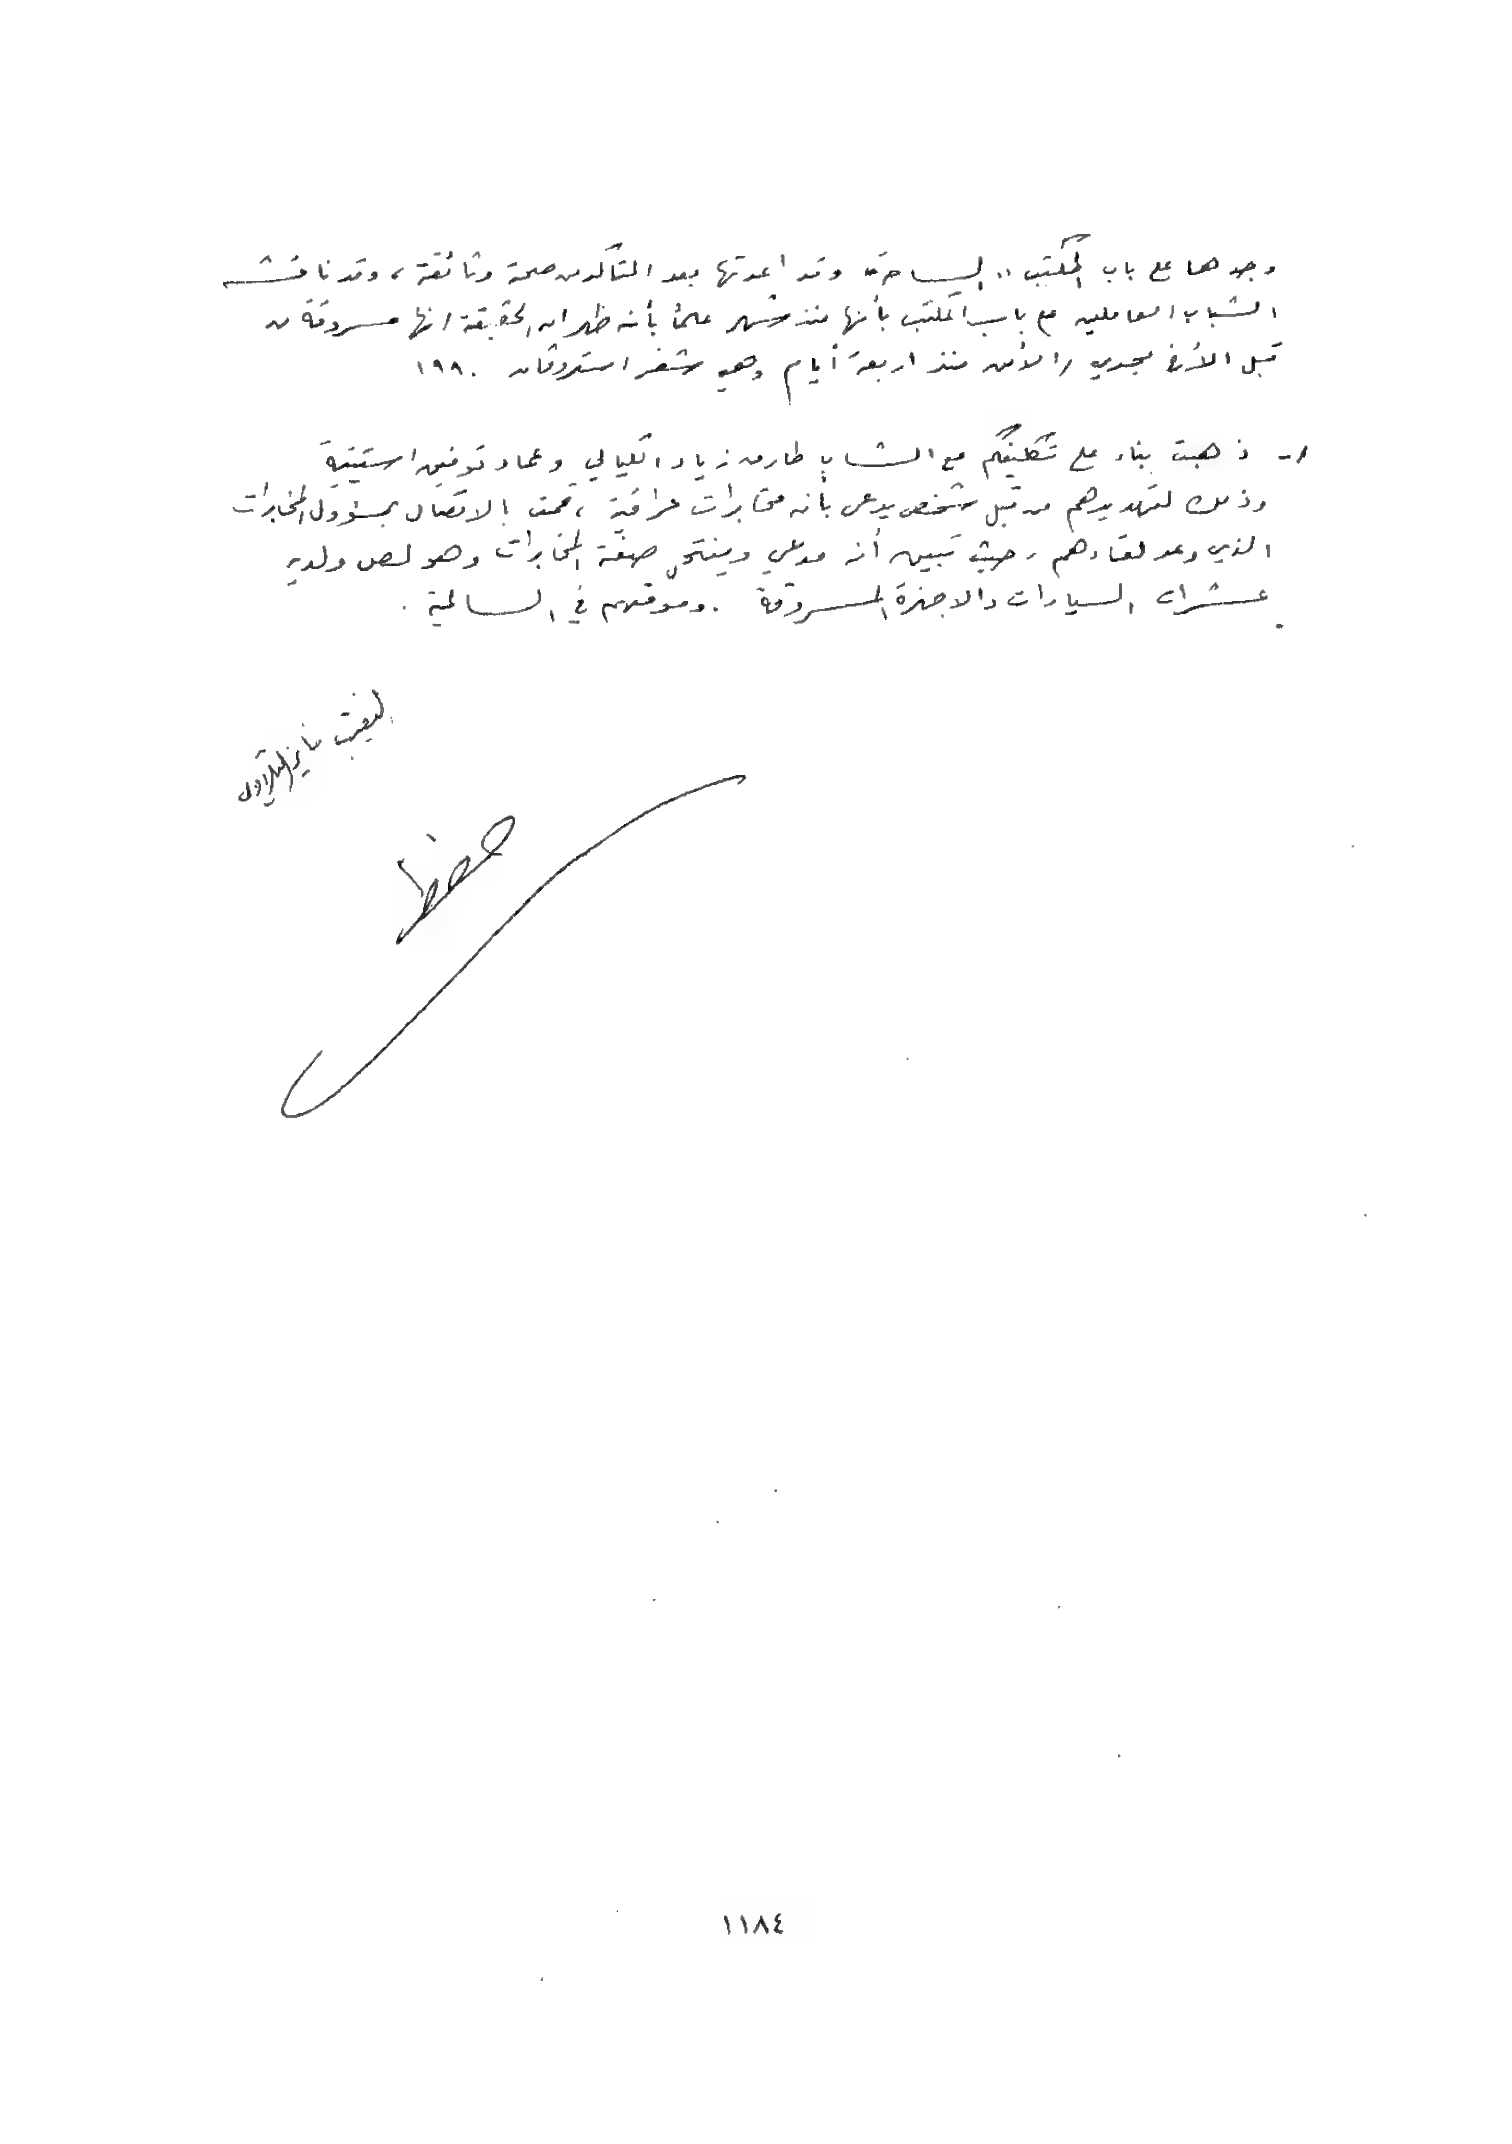 وجدها على باب المكتب "الساحة" وقد اعدتها بعد التأكد من صحة وثائقة ، وقد ناقشت
الشباب العاملين مع باب المكتب بأنها منذ شهر علماً بأنه ظهر ان الحقيقة انها مسروقة من
قبل الأخ مجدي / الأمن منذ اربعة أيام وهي شفر استروقان ١٩٨٠
- ذهبت بناء على تكليفكم مع الشباب طارق زياد الكيالي وعماد توفيق استيتية
وذلك لتهديدهم من قبل شخص يدعى بأنه مخابرات عراقية ، قمت بالاتصال بمسؤول المخابرات
الذي وعد لقاءهم ، حيث تبين أنه مدعي وينتحل صفة المخابرات وهو لص ولديه
عشرات السيارات والاجهزة المسروقة . وموقعهم في السالمية .
النقيب فايز
حفظ
١١٨٤